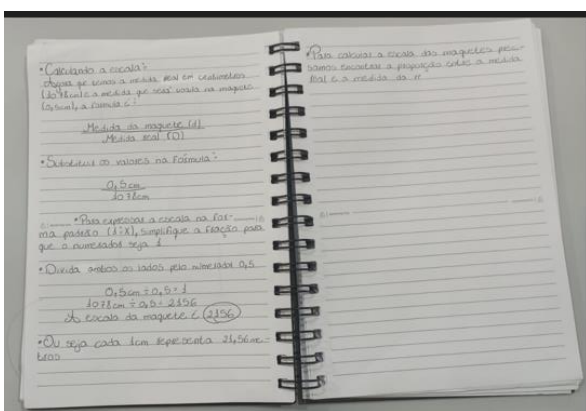 • Calculando a escala:
Agora que temos a medida real em centímetros
(1078cm) e a medida que será usada na maquete
(0,5cm), a fórmula é:
Medida da maquete (d)
Medida real (D)
• Substitua os valores na fórmula:
0,5 cm
1078cm
• Para expressar a escala na for-
ma padrão (1:X), simplifique a fração para
que o numerador seja 1
• Divida ambos os lados pelo numerador 0,5
0,5cm ÷ 0,5 = 1
1078cm ÷ 0,5 = 2156
A escala da maquete é 2156
• Ou seja cada 1cm representa 21,56 me-
tros
• Para calcular a escala das maquetes preci-
samos encontrar a proporção entre a medida
real e a medida da m